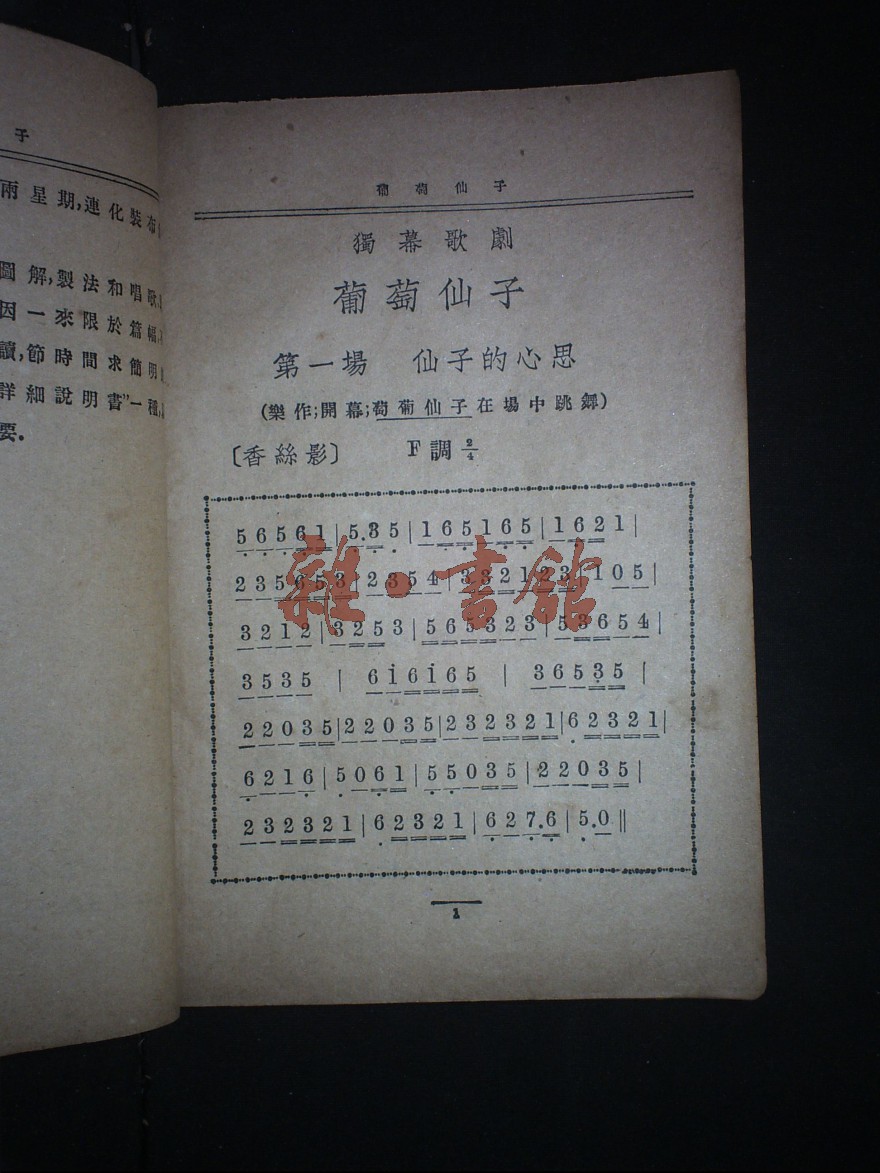 子
兩星期,連化裝布
圖解,製法和唱歌
因一來限於篇幅,
讀,節時間求簡明
詳細說明書"一種,
要。
葡萄仙子
獨幕歌劇
葡萄仙子
第一場 仙子的心思
(樂作;開幕;萄葡仙子在場中跳舞)
〔香絲影〕 F調 2/4
5 6 5 6 1 | 5. 3 5 | 1 6 5 1 6 5 | 1 6 2 1 |
2 3 5 6 5 3 | 2 3 5 4 | 3 3 2 1 2 3 | 1 0 5 |
3 2 1 2 | 3 2 5 3 | 5 6 5 3 2 3 | 5 3 6 5 4 |
3 5 3 5 | 6 i 6 i 6 5 | 3 6 5 3 5 |
2 2 0 3 5 | 2 2 0 3 5 | 2 3 2 3 2 1 | 6 2 3 2 1 |
6 2 1 6 | 5 0 6 1 | 5 5 0 3 5 | 2 2 0 3 5 |
2 3 2 3 2 1 | 6 2 3 2 1 | 6 2 7. 6 | 5. 0 ‖
雜·書館
1